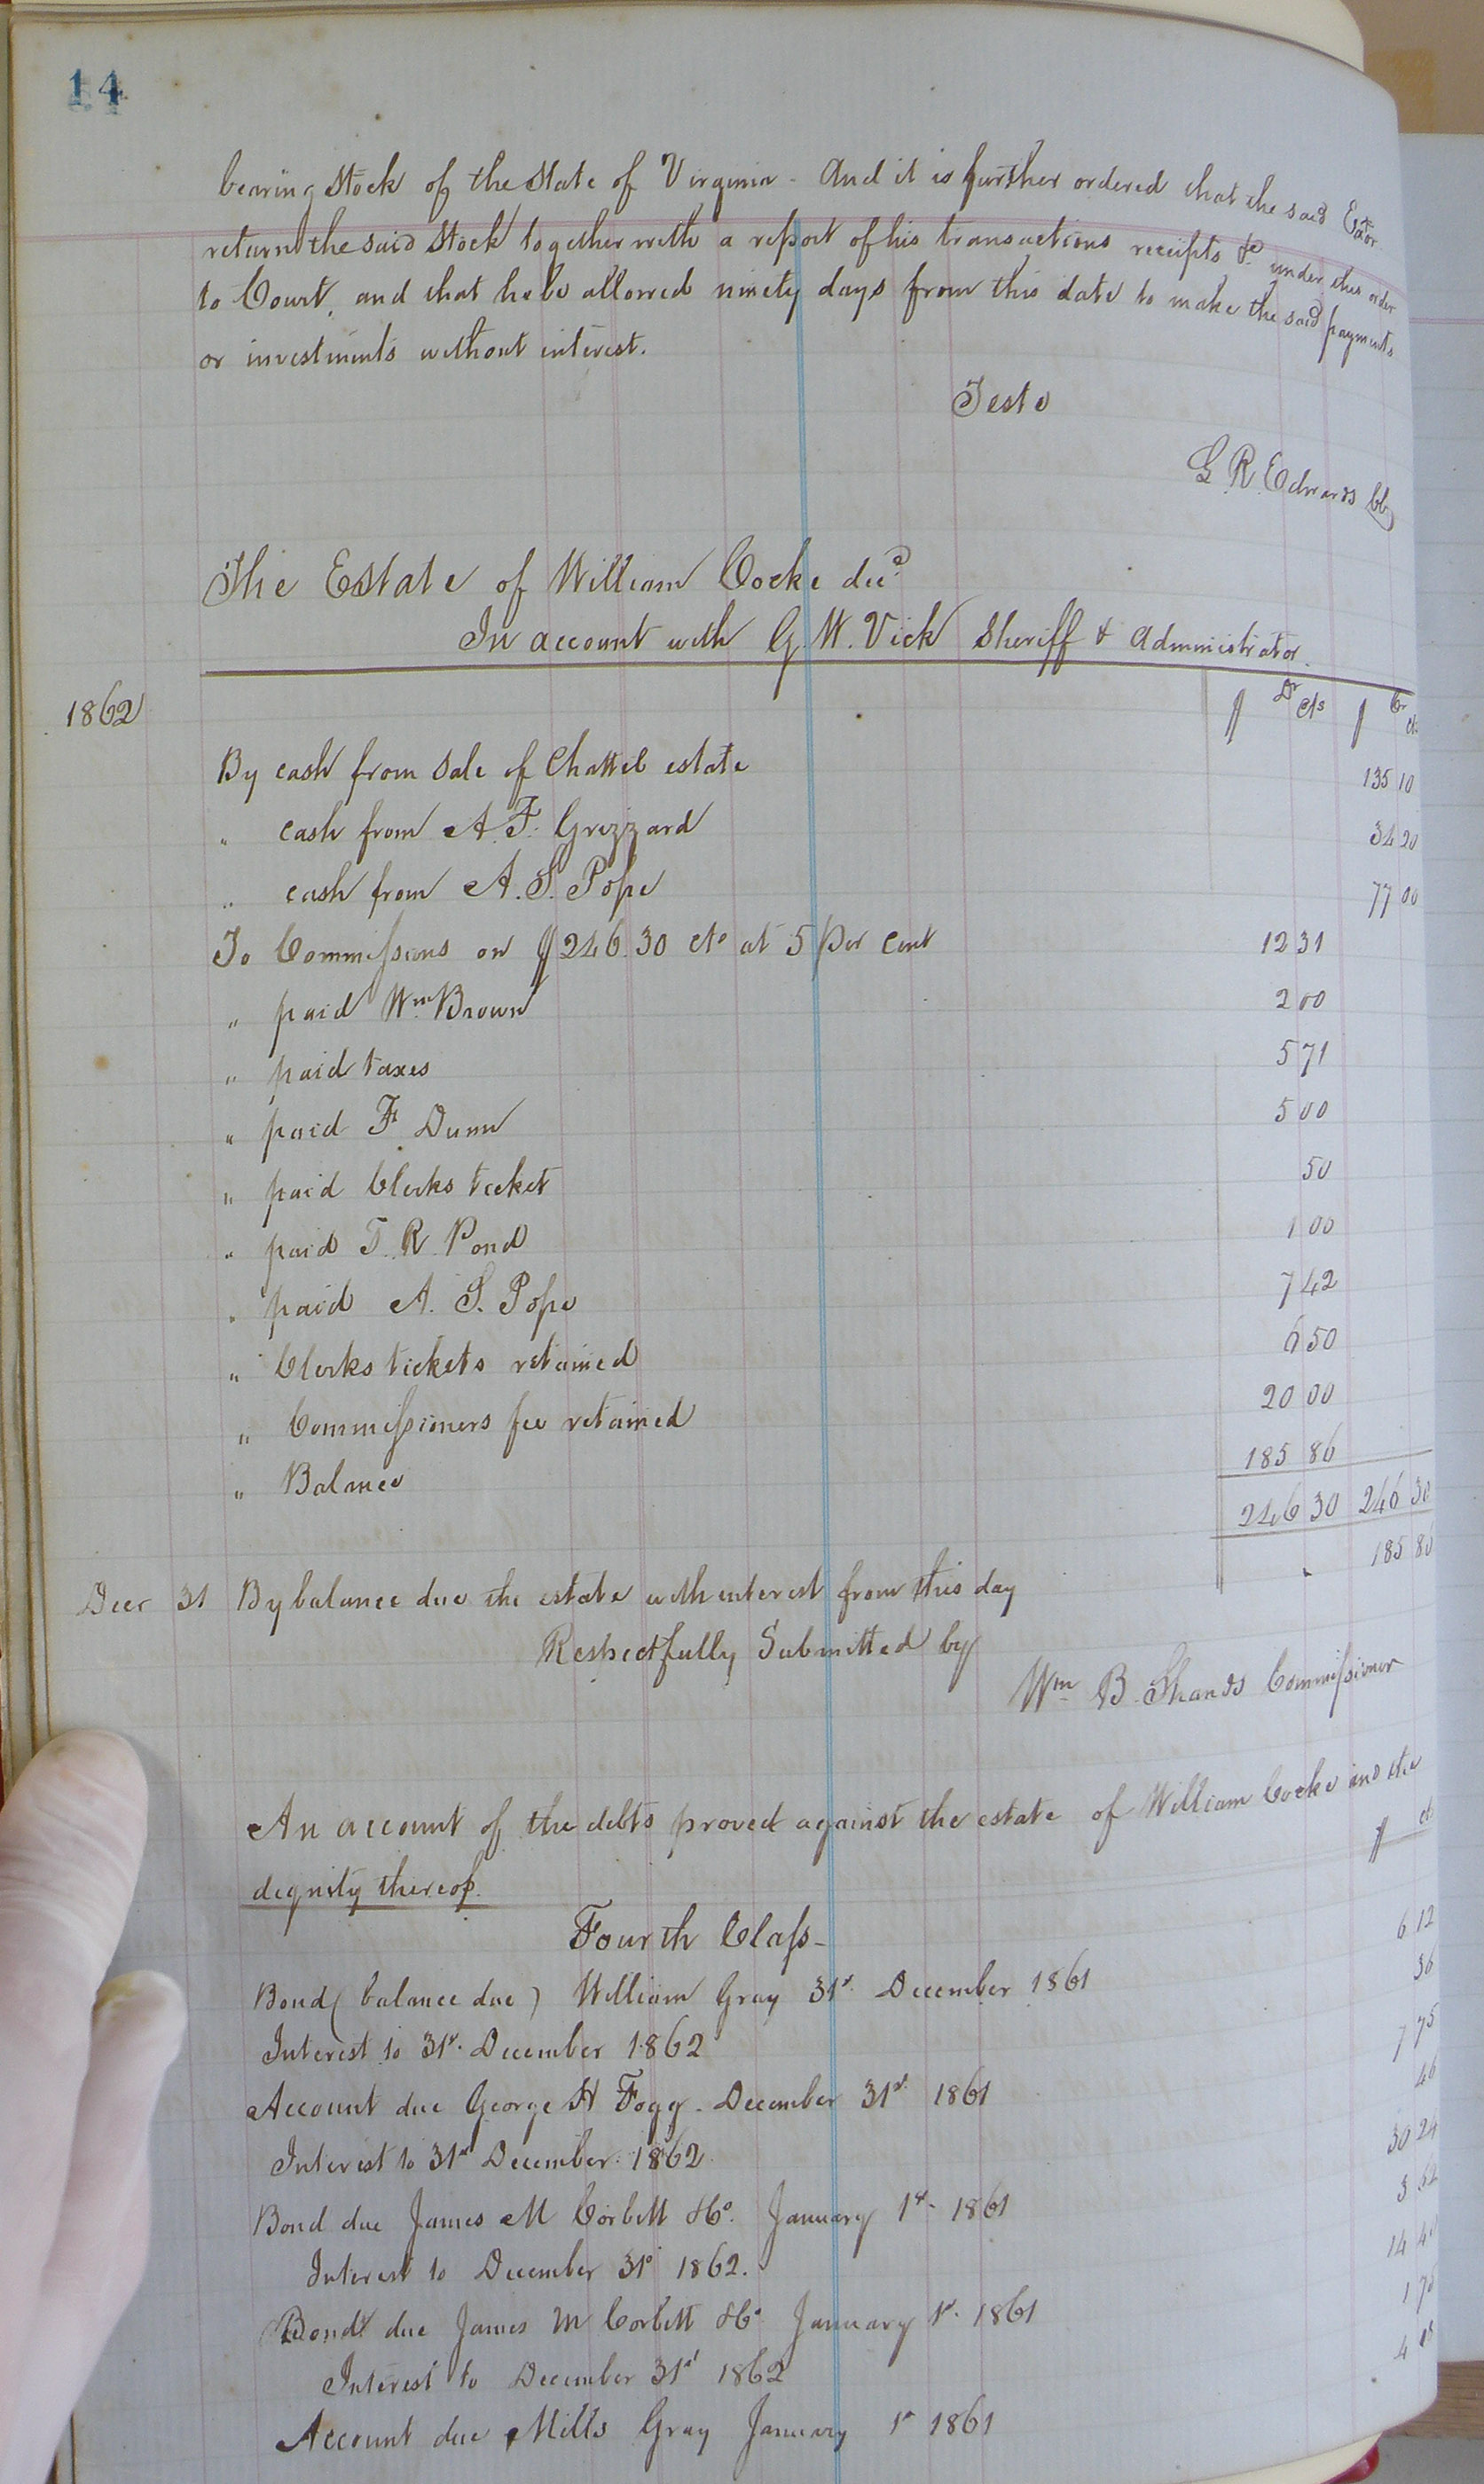 14
bearing Stock of the State of Virginia - And it is further ordered that the said Exator
return the said Stock together with a report of his transactions receipts &c under this order
to Court, and that he be allowed ninety days from this date to make the said payments
or investments without interest.
Teste
G. R. Edwards Clk
The Estate of William Cocke decd
In account with G. W. Vick Sheriff & Administrator.
1862 $ Dr cts $ Cr cts
By cash from Sale of Chattel estate 135 10
" cash from A. F. Grizzard 34 20
" cash from A. S. Pope 77 00
To Commissions on $246.30 cts at 5 Per Cent 12 31
" paid Wm Brown 2 00
" paid taxes 5 71
" paid F Dunn 5 00
" paid Clerks ticket 50
" paid T. R. Pond 1 00
" paid A. S. Pope 7 42
" Clerks tickets retained 6 50
" Commissioners fee retained 20 00
" Balance 185 86
246 30 246 30
Decr 31 By balance due the estate with interest from this day 185 86
Respectfully Submitted by
Wm B. Shands Commissioner
An account of the debts proved against the estate of William Cocke and the
dignity thereof. $ ct
Fourth Class -
Bond (balance due) William Gray 31st December 1861 6 12
Interest to 31st December 1862 36
Account due George H Fogg - December 31st 1861 7 75
Interest to 31st December 1862 46
Bond due James M Corbett &Co. January 1st 1861 30 24
Interest to December 31st 1862. 3 62
Bond due James M Corbett &Co January 1st 1861 14 40
Interest to December 31st 1862 1 70
Account due Mills Gray January 1st 1861